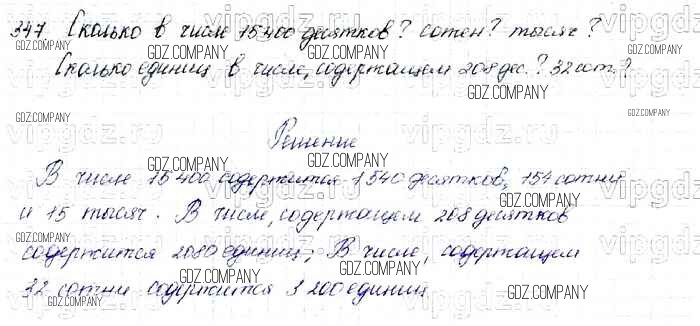 347 Сколько в числе 15400 десятков? сотен? тысяч?
Сколько единиц в числе, содержащем 208 дес.? 32 сот.?
Решение
В числе 15400 содержится 1540 десятков, 154 сотни
и 15 тысяч. В числе, содержащем 208 десятков
содержится 2080 единиц, В числе, содержащем
32 сотни содержится 3200 единиц
GDZ.COMPANY
vipgdz.ru